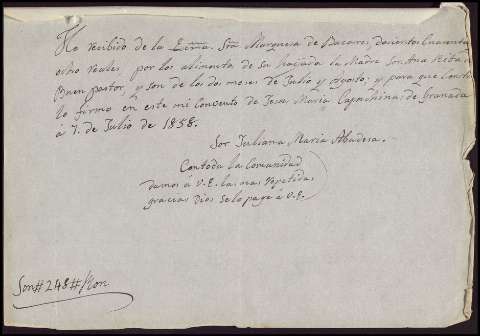 He recibido de la Exma. Sra. Marquesa de Bacares, docientos cuarenta
ocho reales, por los alimentos de su haijada la Madre Sor Ana Rita d
Buen pastor, y son de los dos meses de Julio y Agosto; y para que conste
lo firmo en este mi Convento de Jesus Maria Capuchinas de Granada
á 7. de Julio de 1858.
Sor Juliana Maria Abadesa.
Con toda la Comunidad
damos á V.E. las mas repetidas
gracias Dios se lo page á V.E.
Son#248#Ron